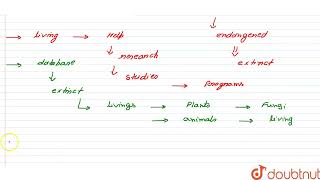 → Living → Help endangered
↓ ↓ ⇓
research extinct
→ database ↓
↓ studies → Programs
extinct
↳ Livings → Plants → Fungi
→ animals → living
doubtnut